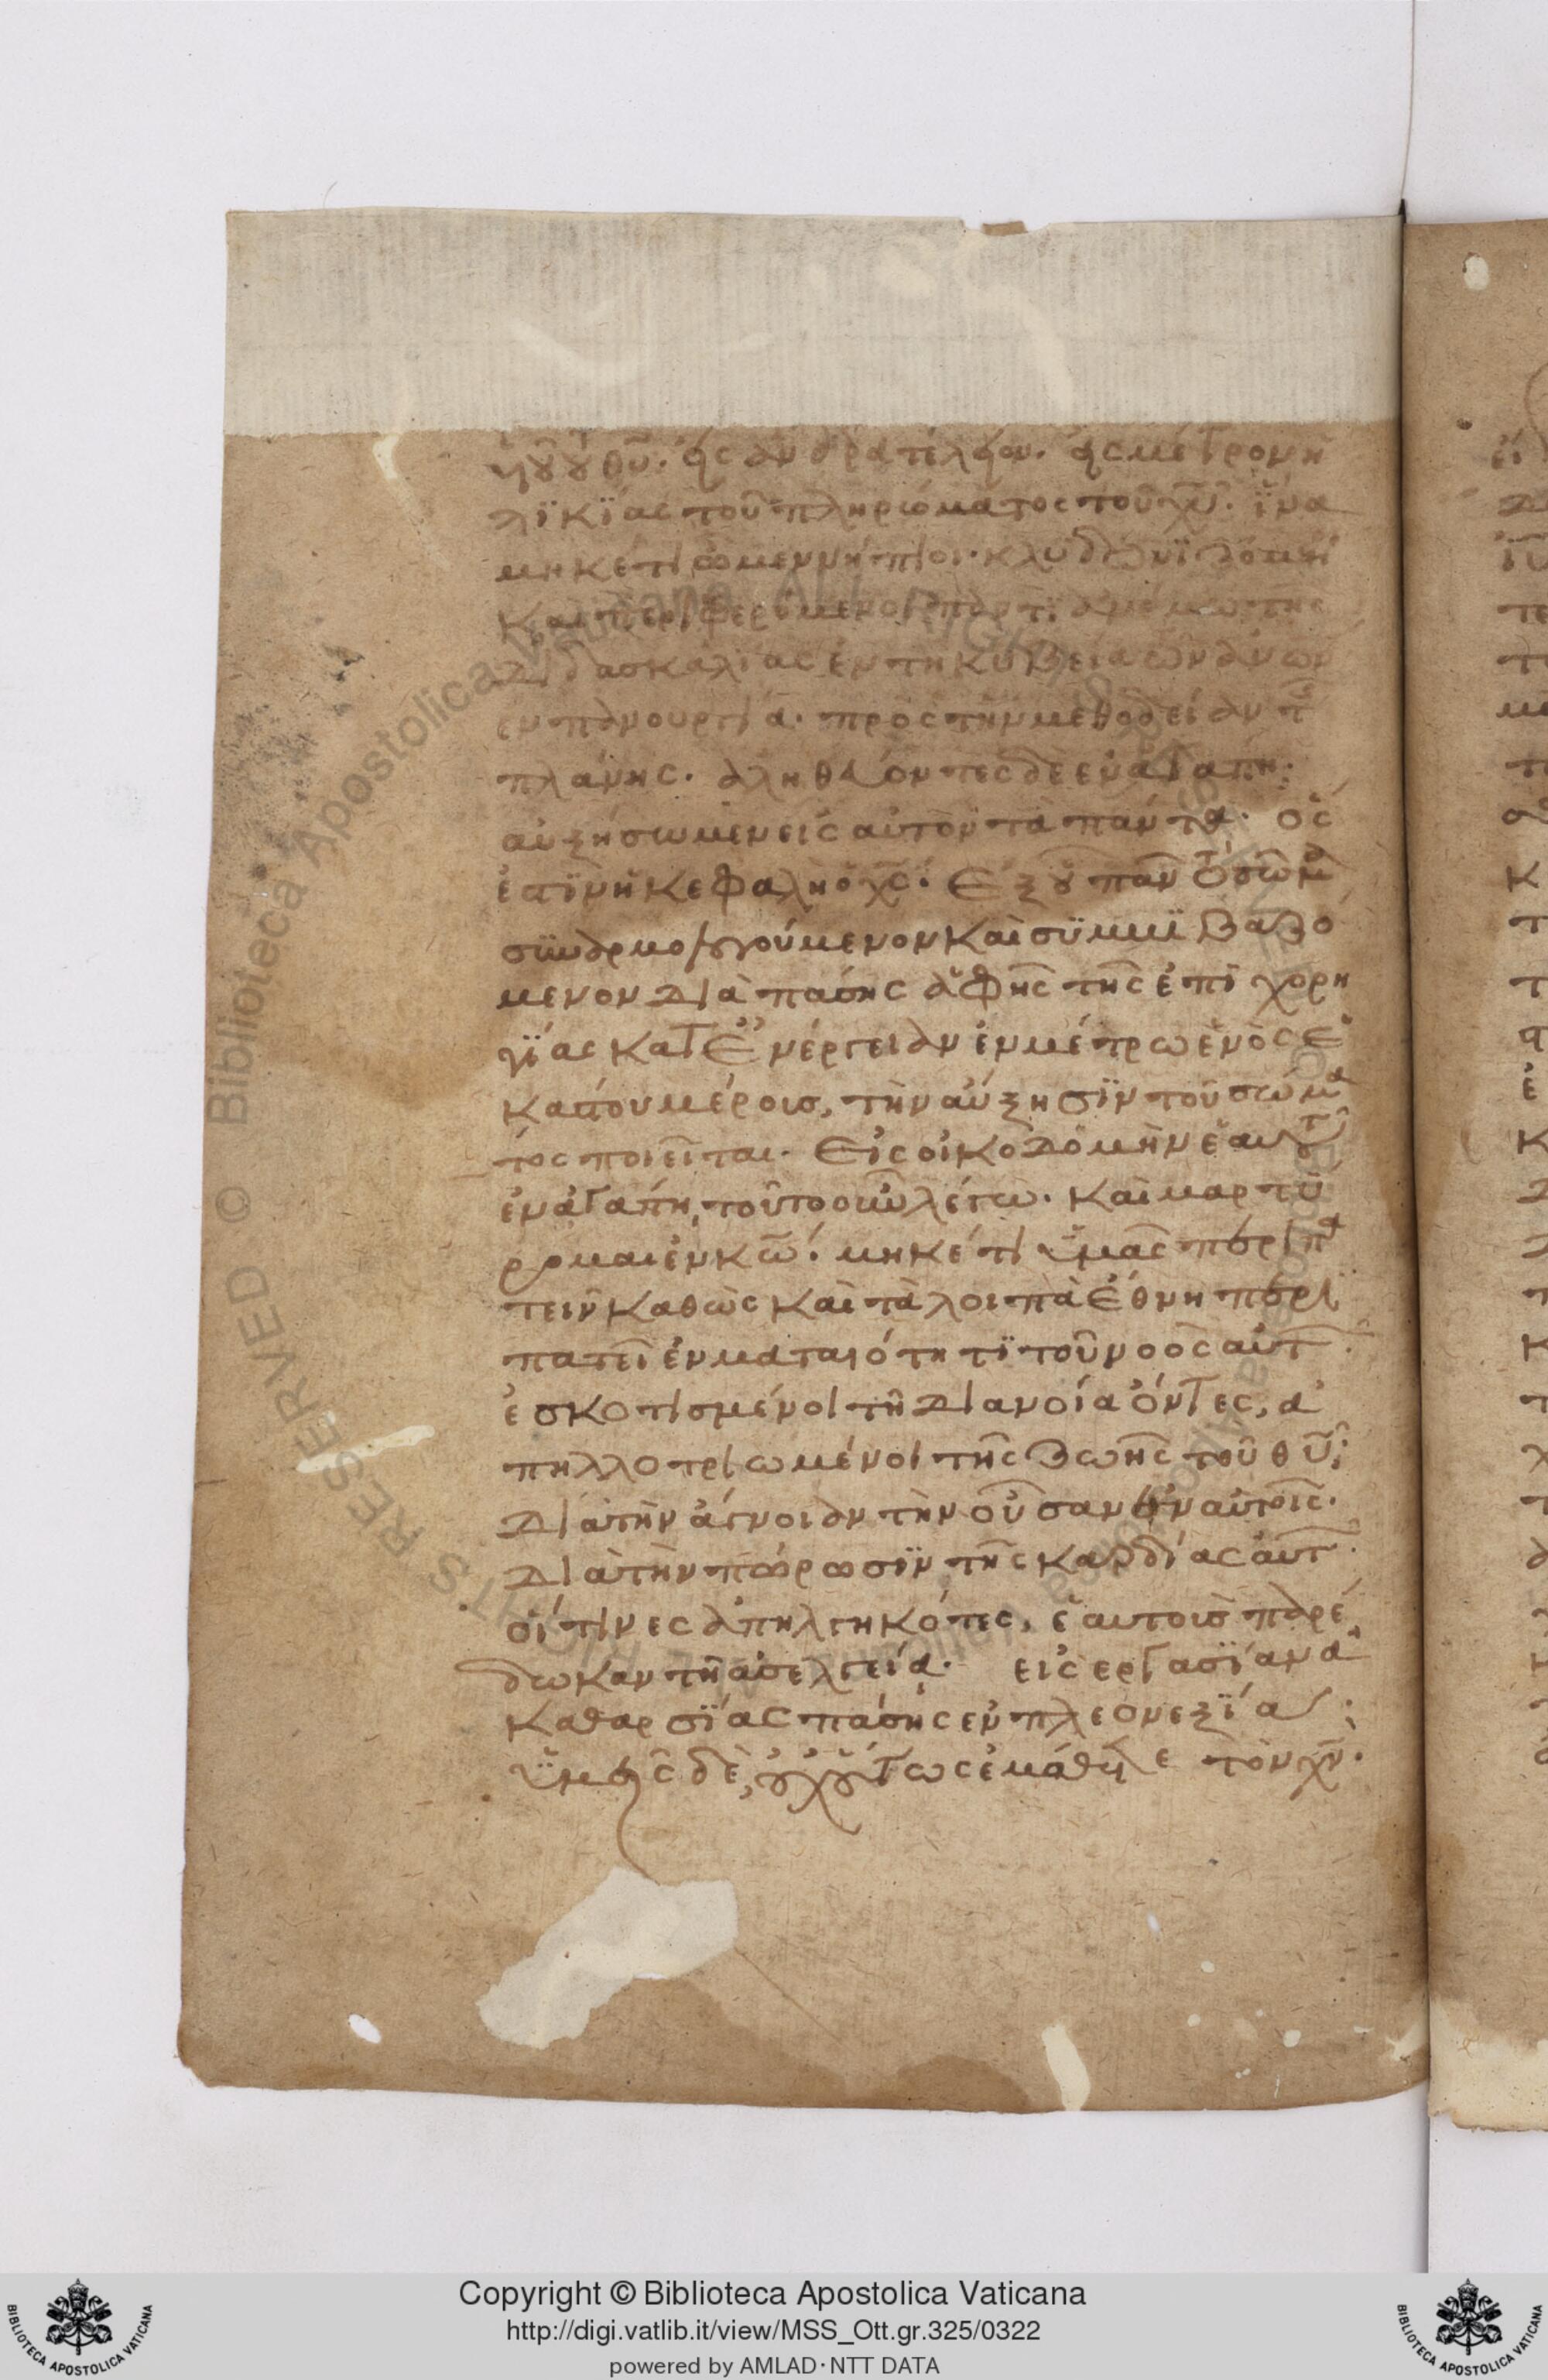 υἱοῦ τοῦ θῦ. εἰς ἄνδρα τέλειον. εἰς μέτρον ἡ
λϊκΐας τοῦ πληρώματος τοῦ χῦ. ἵνα
μηκέτι ὦμεν νήπιοι. κλυδωνϊζόμεν
καὶ περιφερόμενοι παντὶ ἀνέμω τῆς
διδασκαλίας ἐν τῆ κυβεία τῶν ἀνων
ἐν πανουργία. πρὸς τὴν μεθοδείαν τ
πλάνης. ἀληθεύοντες δὲ ἐν ἀγάπη.
αὐξήσωμεν εἰς αὐτὸν τὰ πάντα. ὅς
ἐστϊν ἡ κεφαλὴ ὁ χς. Ἐξ οὗ πᾶν τὸ σῶμα
σϋναρμολογούμενον καὶ σϋμμϊβαζό
μενον διὰ πάσης ἁφῆς τῆς ἐπιχορη
γΐας κατ' ἐνέργειαν ἐν μέτρω ἑνὸς ἑ
κάστου μέρους, τὴν αὔξησϊν τοῦ σώμα
τος ποιεῖται. Εἰς οἰκοδομὴν ἑαυτοῦ
ἐν ἀγάπη, τοῦτο οὖν λέγω. καὶ μαρτύ
ρομαι ἐν κω. μηκέτι ὑμᾶς περιπα
τεῖν καθὼς καὶ τὰ λοιπὰ ἔθνη περι
πατεῖ ἐν ματαιότητϊ τοῦ νοὸς αὐτ.
ἐσκοτισμένοι τῆ διανοία ὄντες, ἀ
πηλλοτριωμένοι τῆς ζωῆς τοῦ θῦ.
διὰ τὴν ἄγνοιαν τὴν οὖσαν ἐν αὐτοῖς.
διὰ τὴν πώρωσϊν τῆς καρδίας αὐτ.
οἵτινες ἀπηλγηκότες, ἑαυτοὺς παρέ
δωκαν τῆ ἀσελγεία. εἰς ἐργασΐαν ἀ
καθαρσΐας πάσης ἐν πλεονεξΐα.
ὑμεῖς δὲ, οὐχ οὕτως ἐμάθετε τὸν χν.
Copyright © Biblioteca Apostolica Vaticana
http://digi.vatlib.it/view/MSS_Ott.gr.325/0322
powered by AMLAD·NTT DATA